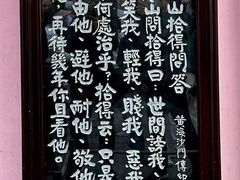 山拾得問答
黃海沙門傳
山問拾得曰：世間謗我、
笑我、輕我、賤我、惡我
何處治乎？拾得云：只是
由他、避他、耐他、敬他
、再待幾年你且看他。